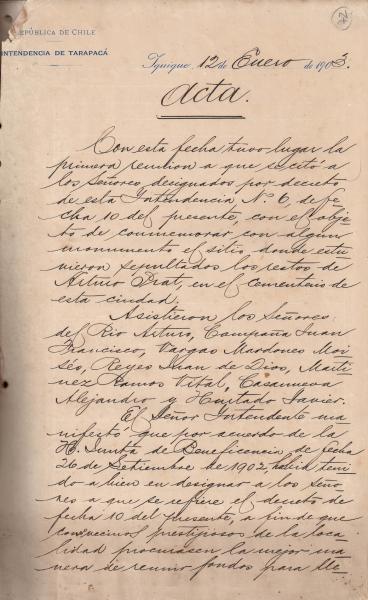 REPÚBLICA DE CHILE
INTENDENCIA DE TARAPACÁ
Iquique, 12 de Enero de 1903.
Acta.
Con esta fecha tuvo lugar la
primera reunion a que se citó a
los Señores designados por decreto
de esta Intendencia N° 6, de fe
cha 10 del presente, con el obje
to de conmemorar con algun
monumento el sitio donde estu
vieron sepultados los restos de
Arturo Prat, en el cementerio de
esta ciudad.
Asistieron los Señores:
del Rio Arturo, Campaña Juan
Francisco, Vargas Mardones Moi
sés, Reyes Juan de Dios, Martí
nez Ramos Vital, Casanueva
Alejandro y Hurtado Javier.
El Señor Intendente ma
nifestó que por acuerdo de la
H. Junta de Beneficencia de fecha
26 de Setiembre de 1902, habia teni
do a bien en designar a los Seño
res a que se refiere el decreto de
fecha 10 del presente, a fin de que
convecinos prestijiosos de la loca
lidad procurasen la mejor ma
nera de reunir fondos para lle